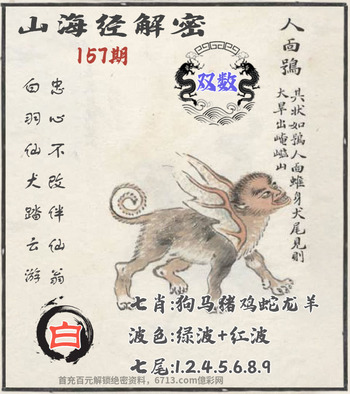 山海经解密
157期
双数
人面鴞
其状如鴞人面蜼身犬尾见则
大旱出崦嵫山
忠心不改伴仙翁
白羽仙犬踏云游
七肖:狗马猪鸡蛇龙羊
波色:绿波+红波
七尾:1.2.4.5.6.8.9
白
首充百元解锁绝密资料，6713.com億彩网